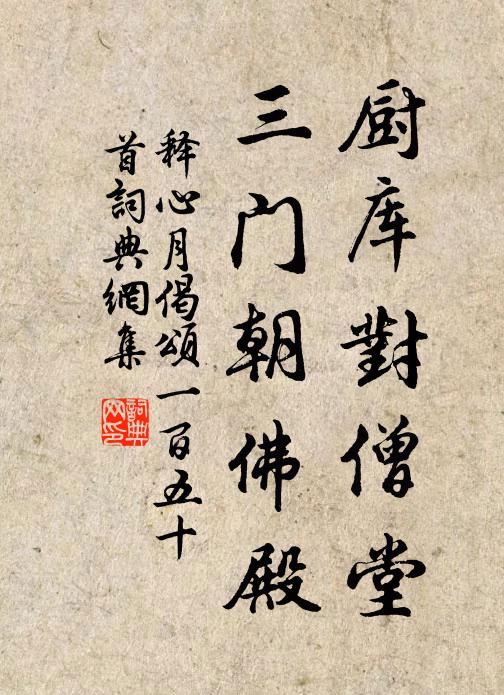 厨库對僧堂
三门朝佛殿
释心月偈頌一百五十
首詞典網集
詞典
网印